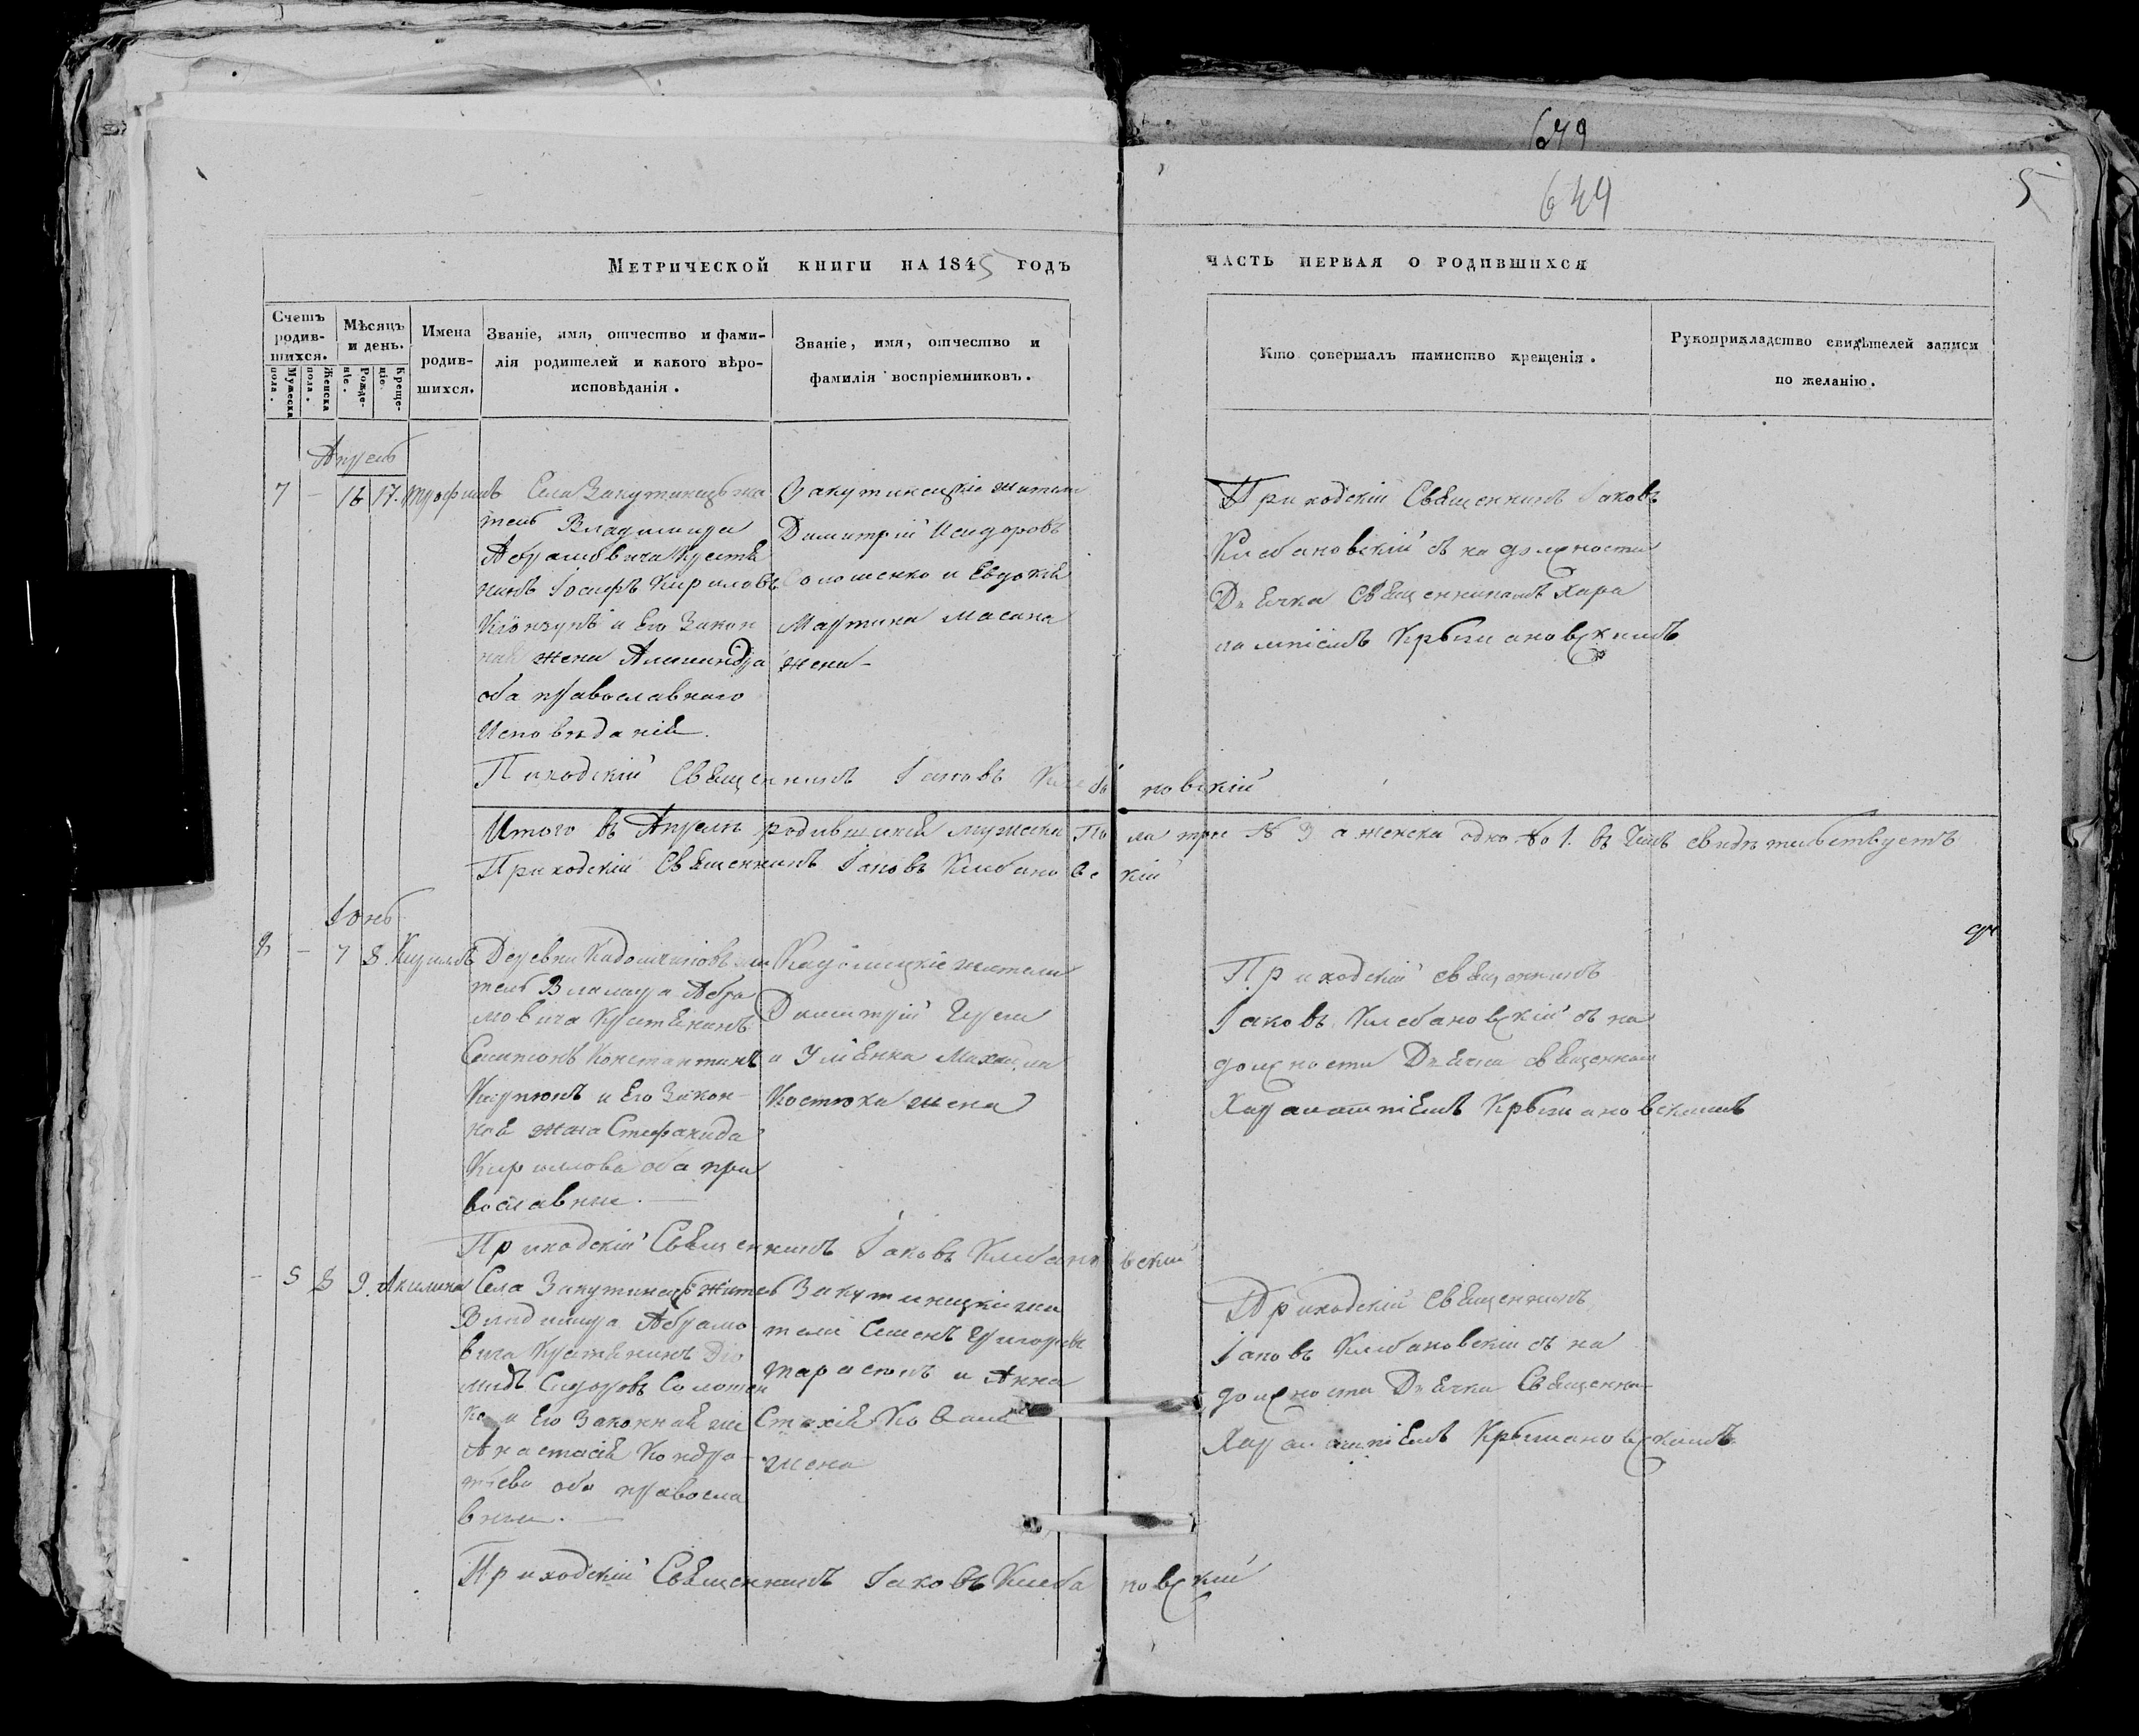 679
644
5
Метрической книги на 1845 годъ
часть первая о родившихся
Счетъ родив-шихся.
Мужеска пола.
Женска пола.
Мѣсяцъ и день.
Рожде-ніе.
Креще-ніе.
Имена родив-шихся.
Званіе, имя, отчество и фами-
лія родителей и какого вѣро-
исповѣданія.
Званіе, имя, отчество и
фамилія воспріемниковъ.
Кто совершалъ таинство крещенія.
Рукоприкладство свидѣтелей записи
по желанію.
Апрель
7 - 16 17. Трофимъ
Села Закутинецъ жи
тель Владимира
Абрамовича Крестя
нинъ Іосифъ Кириловъ
и Его Закон
ная жена Александра
оба православнаго
Исповѣданія.
Закутинецкіе жители
Димитрій Исидоровъ
Соломенко и Евдокія
Мартина Масана
жена-
Приходскій Священникъ Іаковъ
Клебановскій съ на должности
Дьячка Священникомъ Хара
лампіемъ Крыжановскимъ
Приходскій Священникъ Іаковъ Клебановскій
Итого въ Апреле родившихся мужеска Пола три № 3 а женска одно № 1. въ Чемъ свидѣтельствуетъ
Приходскій Священникъ Іаковъ Клебановскій
Іюнь
8 - 7 8 Кирилъ
Деревни жи
тель Владимира Абра
мовича Крестянинъ
Симеонъ Константинъ
и Его Закон-
ная жена Стефанида
Кириллова оба пра
вославные.
жители
Димитрій
и Уліянна Михаила
Костюка жена
Приходскій священникъ
Іаковъ Клебановскій съ на
должности Дьячка священном
Харалампіемъ Крыжановскимъ
Приходскій Священникъ Іаковъ Клебановскій
- 5 8 9. Акилина
Села Закутинецъ житель
Владимира Абрамо
вича Крестянинъ Діо
мидъ Сидоровъ Соломен
ко и Его Законная же
Анастасія Кондра-
тьева оба правосла
вные.
Закутинецкіе жи
тели Семенъ Григорьевъ
Тарасюкъ и Анна
Стахія Коваля
жена
Приходскій Священникъ
Іаковъ Клебановскій съ на
должности Дьячка Священни-
Харалампіемъ Крыжановскимъ
Приходскій Священникъ Іаковъ Клебановскій